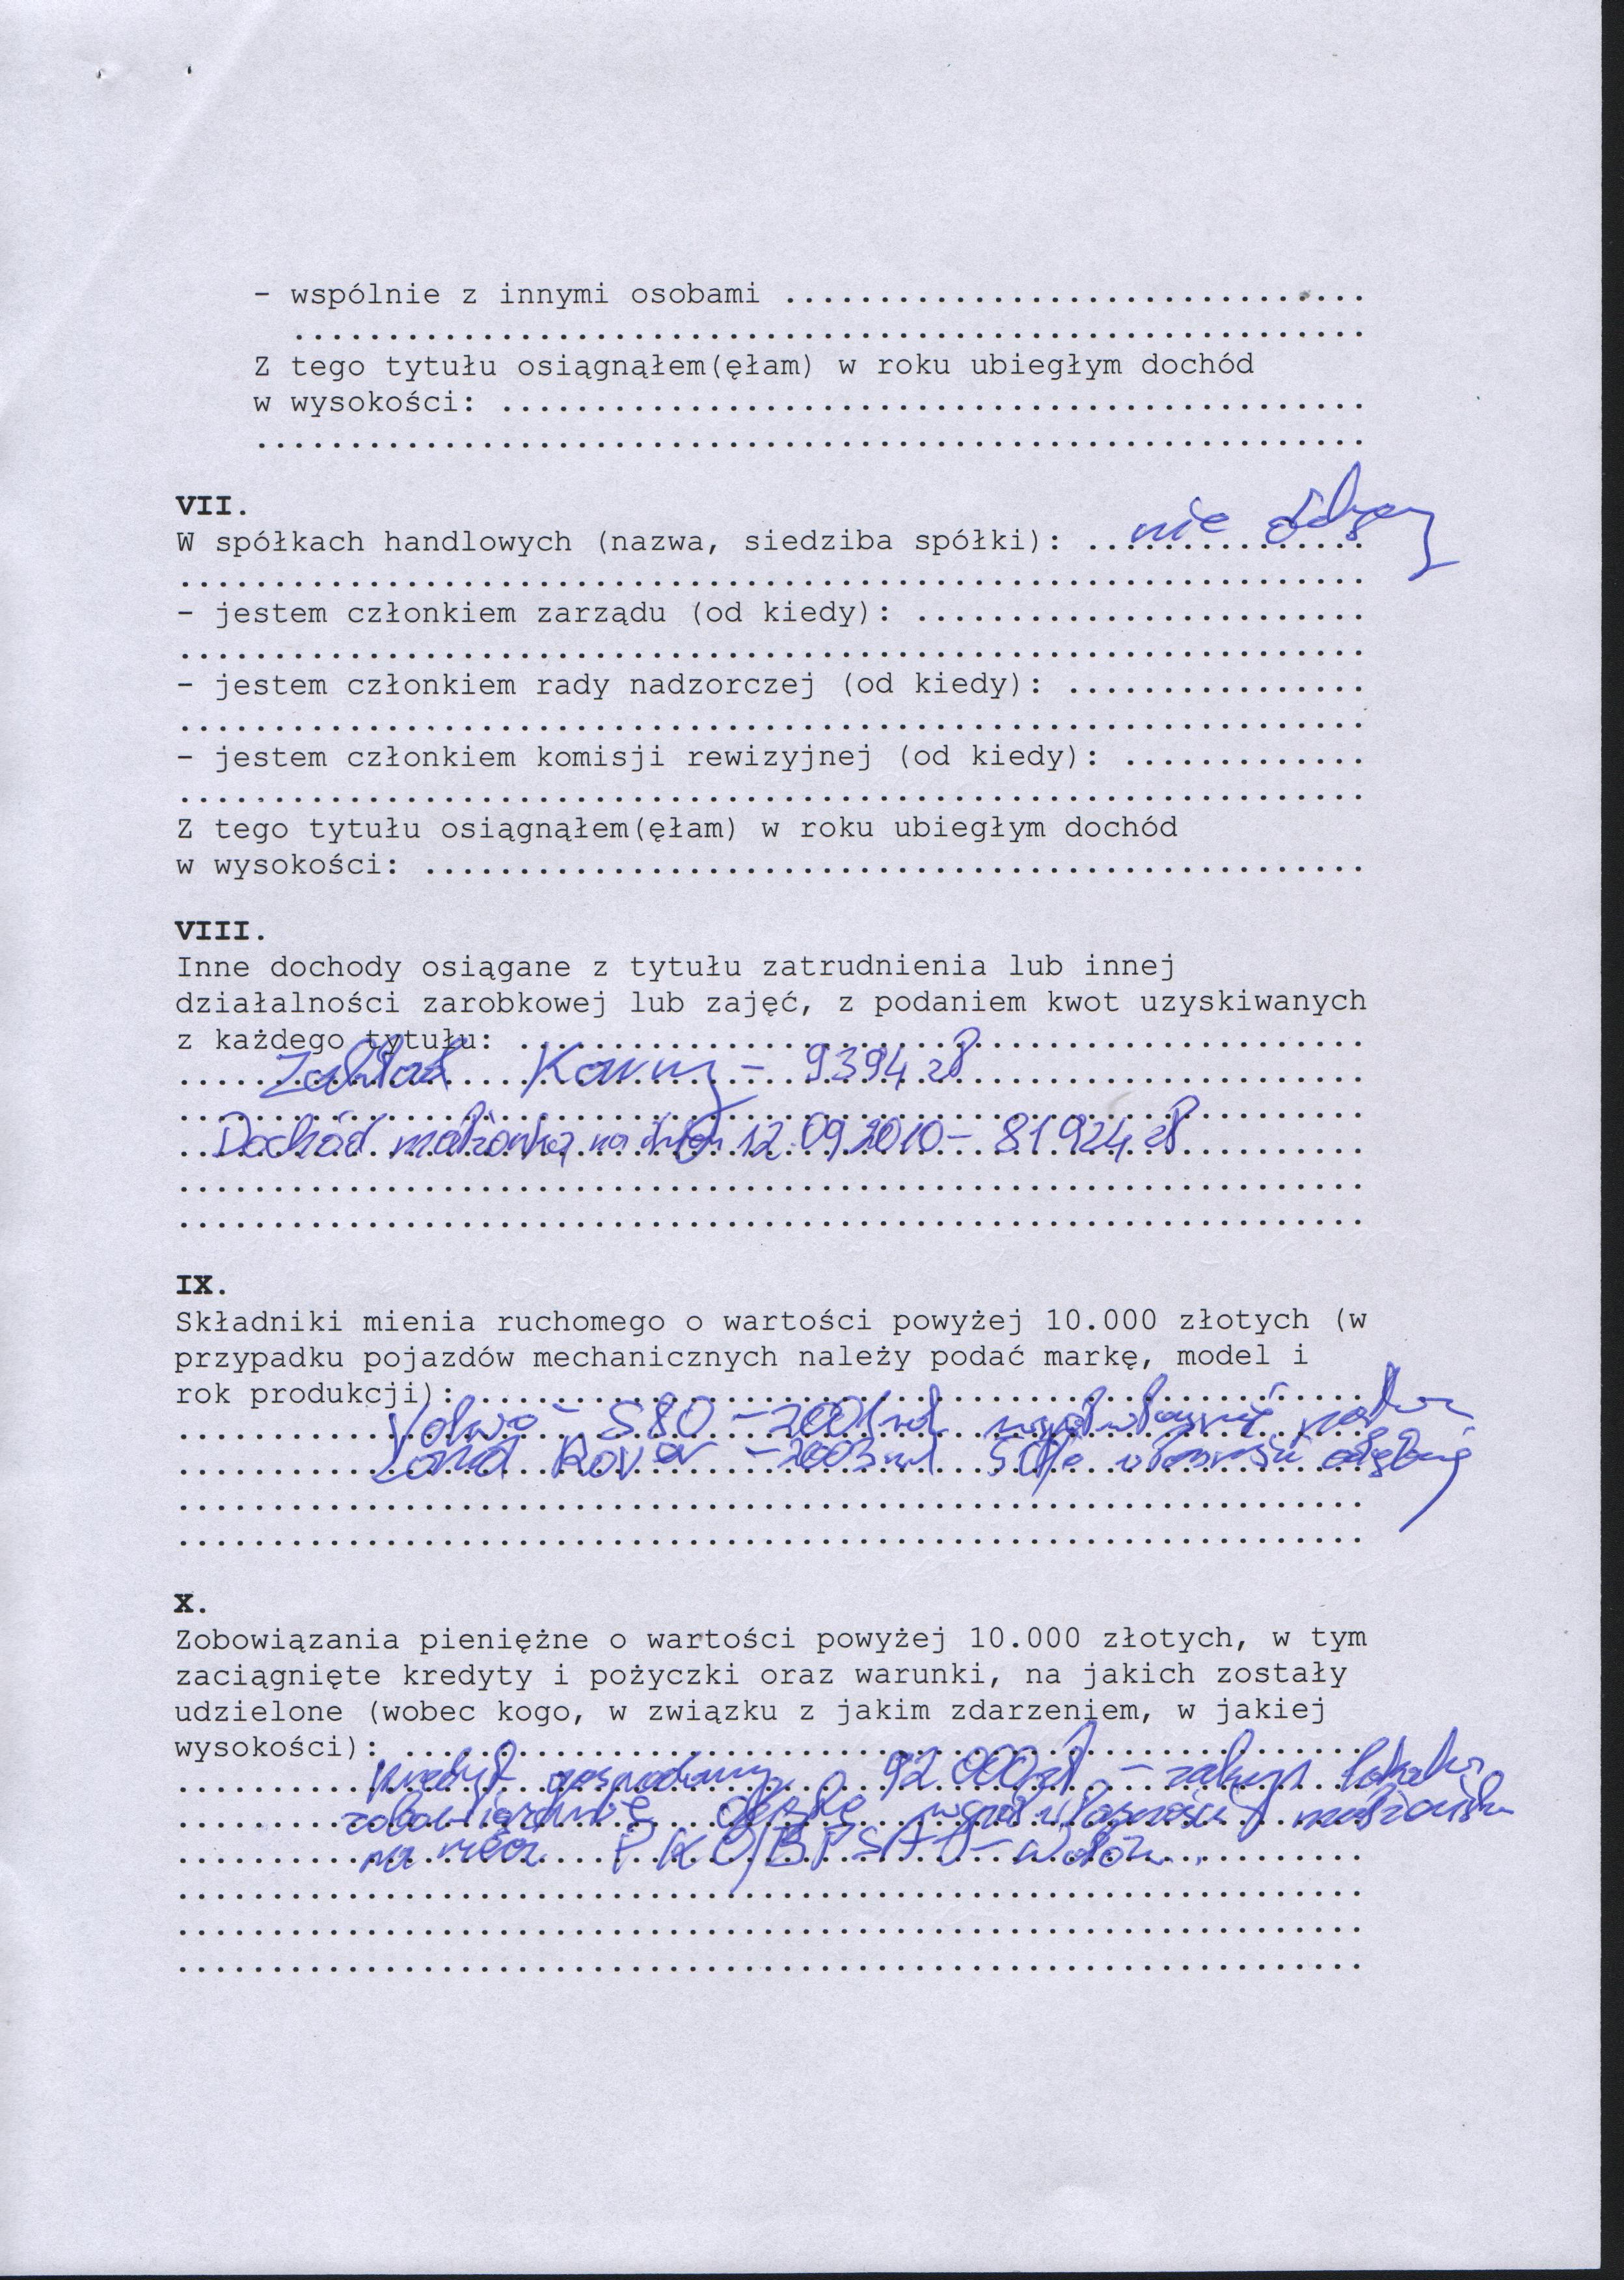 - wspólnie z innymi osobami ...............................
.........................................................
Z tego tytułu osiągnąłem(ęłam) w roku ubiegłym dochód
w wysokości: ..............................................
...........................................................
VII.
W spółkach handlowych (nazwa, siedziba spółki): nie
...............................................................
- jestem członkiem zarządu (od kiedy): ........................
...............................................................
- jestem członkiem rady nadzorczej (od kiedy): ................
...............................................................
- jestem członkiem komisji rewizyjnej (od kiedy): .............
...............................................................
Z tego tytułu osiągnąłem(ęłam) w roku ubiegłym dochód
w wysokości: ..................................................
VIII.
Inne dochody osiągane z tytułu zatrudnienia lub innej
działalności zarobkowej lub zajęć, z podaniem kwot uzyskiwanych
z każdego tytułu: .............................................
Zakład Karny - 9394 zł
Dochód małżonka na dzień 12.09.2010 - 81924 zł
...............................................................
...............................................................
IX.
Składniki mienia ruchomego o wartości powyżej 10.000 złotych (w
przypadku pojazdów mechanicznych należy podać markę, model i
rok produkcji): ...............................................
Volwo - S80 - 2001 rok współwłasność
Land Rover - 2003 rok 50% własność odrębna
...............................................................
...............................................................
X.
Zobowiązania pieniężne o wartości powyżej 10.000 złotych, w tym
zaciągnięte kredyty i pożyczki oraz warunki, na jakich zostały
udzielone (wobec kogo, w związku z jakim zdarzeniem, w jakiej
wysokości): ...................................................
kredyt gospodarczy 92 000 zł - zakup lokalu,
zobowiązanie objęte współwłasnością małżeńską
na rzecz PKO BP SA O- Wołów.
...............................................................
...............................................................
...............................................................